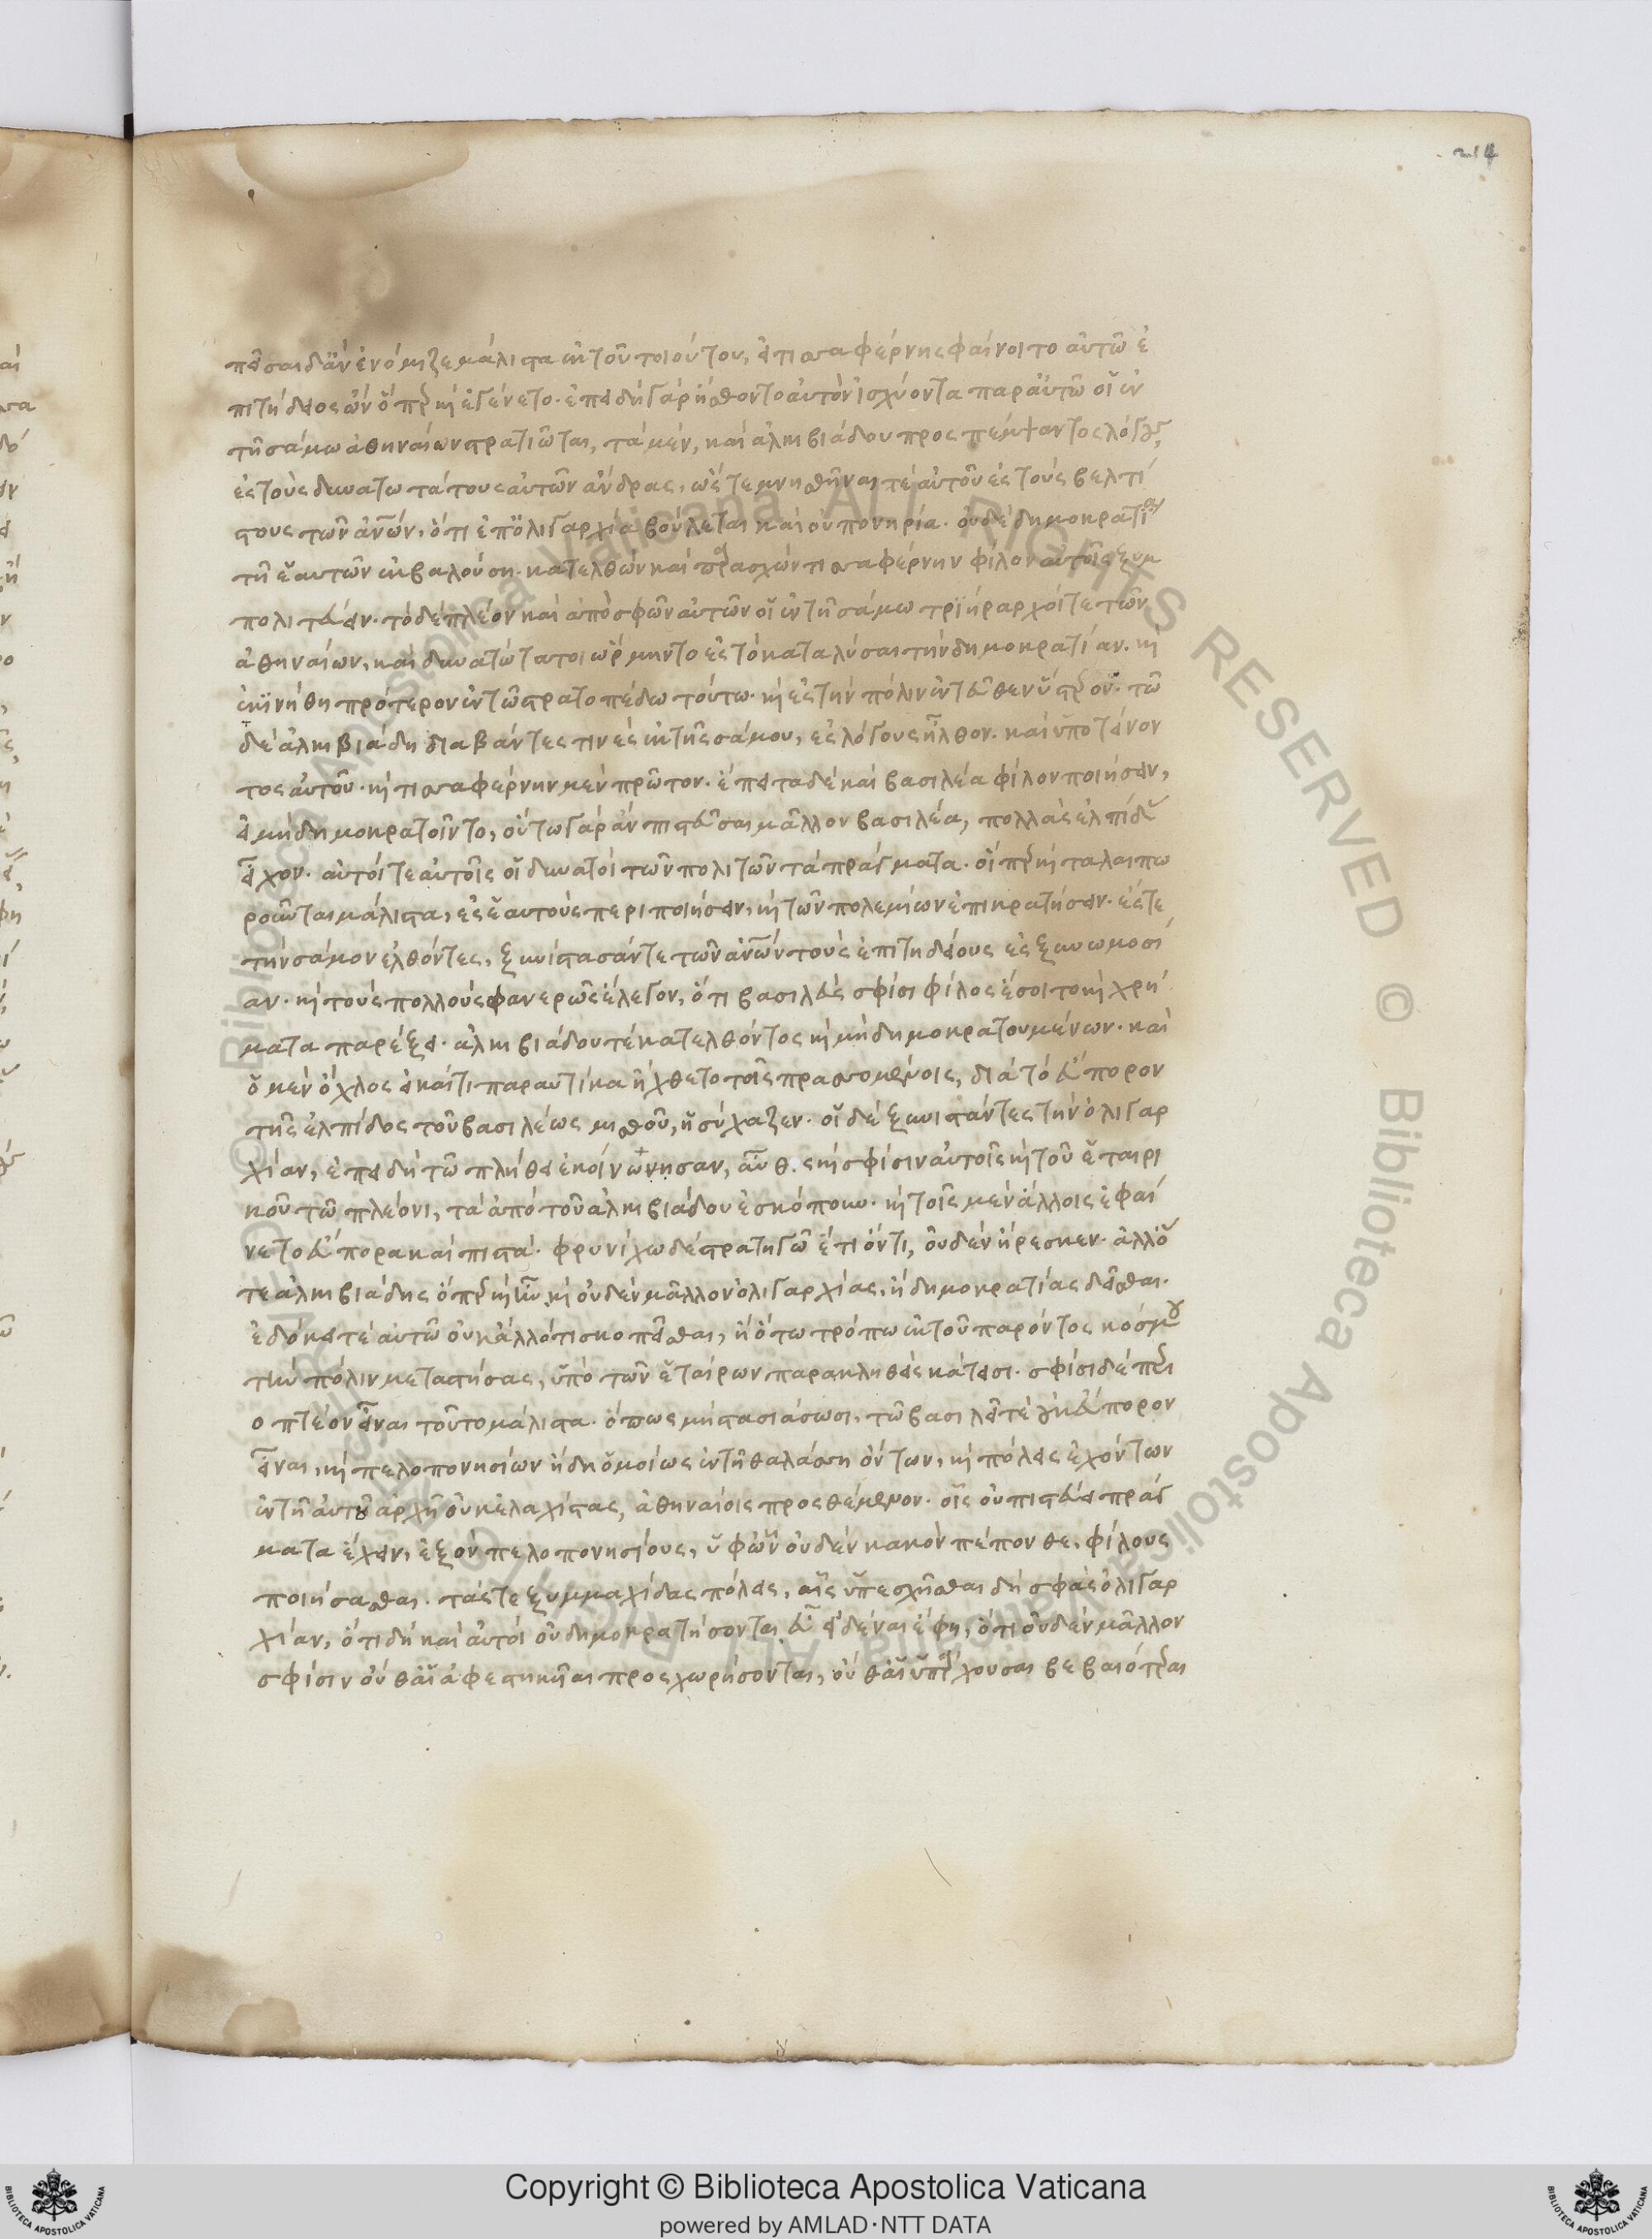 214
πεῖσαι δ' ἂν ἐνόμιζε μάλιστα ἐκ τοῦ τοιούτου, εἰ τισσαφέρνης φαίνοιτο αὐτῶ ἐ
πιτήδειος ὢν ὅπερ καὶ ἐγένετο. ἐπειδὴ γὰρ ἤσθοντο αὐτὸν ἰσχύοντα παρ' αὐτῶ οἱ ἐν
τῆ σάμω ἀθηναίων στρατιῶται, τὰ μὲν, καὶ ἀλκιβιάδου προςπέμψαντος λόγους
ἐς τοὺς δυνατωτάτους αὐτῶν ἄνδρας, ὥστε μνησθῆναι τὲ αὐτοῦ ἐς τοὺς βελτί
στους τῶν ἀνῶν, ὅτι ἐπ' ὀλιγαρχία βούλεται καὶ οὐ πονηρία. οὐδὲ δημοκρατία
τῆ ἑαυτῶν ἐκβαλούση. κατελθὼν καὶ παρασχὼν τισσαφέρνην φίλον αὐτοῖς ξυμ
πολιτεύειν. τὸ δὲ πλέον καὶ ἀπὸ σφῶν αὐτῶν οἱ ἐν τῆ σάμω τριήραρχοί τε τῶν
ἀθηναίων, καὶ δυνατώτατοι ὥρμηντο ἐς τὸ καταλῦσαι τὴν δημοκρατίαν. καὶ
ἐκινήθη πρότερον ἐν τῶ στρατοπέδω τούτω. καὶ ἐς τὴν πόλιν ἐντεῦθεν ὕστερον. τῶ
δὲ ἀλκιβιάδη διαβάντες τινὲς ἐκ τῆς σάμου, ἐς λόγους ἦλθον. καὶ ὑποτείνον
τος αὐτοῦ. καὶ τισσαφέρνην μὲν πρῶτον. ἔπειτα δὲ καὶ βασιλέα φίλον ποιήσειν,
εἰ μὴ δημοκρατοῖντο, οὕτω γὰρ ἂν πιστεῦσαι μᾶλλον βασιλέα, πολλὰς ἐλπίδας
εἶχον. αὐτοί τε αὐτοῖς οἱ δυνατοὶ τῶν πολιτῶν τὰ πράγματα. οἵπερ καὶ ταλαιπω
ροῦνται μάλιστα, ἐς ἑαυτοὺς περιποιήσειν, καὶ τῶν πολεμίων ἐπικρατήσειν. ἔς τε
τὴν σάμον ἐλθόντες, ξυνίστασάν τε τῶν ἀνῶν τοὺς ἐπιτηδείους ἐς ξυνωμοσί
αν. καὶ τοὺς πολλοὺς φανερῶς ἔλεγον, ὅτι βασιλεὺς σφίσι φίλος ἔσοιτο καὶ χρή
ματα παρέξει. ἀλκιβιάδου τὲ κατελθόντος καὶ μὴ δημοκρατουμένων. καὶ
ὁ μὲν ὄχλος εἰ καί τι παραυτίκα ἤχθετο τοῖς πρασσομένοις, διὰ τὸ εὔπορον
τῆς ἐλπίδος τοῦ βασιλέως μισθοῦ, ἡσύχαζεν. οἱ δὲ ξυνιστάντες τὴν ὀλιγαρ
χίαν, ἐπειδὴ τῶ πλήθει ἐκοίνωνησαν, αὖθις καὶ σφίσιν αὐτοῖς καὶ τοῦ ἑταιρι
κοῦ τῶ πλέονι, τὰ ἀπὸ τοῦ ἀλκιβιάδου ἐσκόπουν. καὶ τοῖς μὲν ἄλλοις ἐφαί
νετο εὔπορα καὶ πιστά. φρυνίχω δὲ στρατηγῶ ἔτι ὄντι, οὐδὲν ἤρεσκεν. ἀλλ' ὅ
τε ἀλκιβιάδης ὅπερ καὶ ἦν. καὶ οὐδὲν μᾶλλον ὀλιγαρχίας, ἢ δημοκρατίας δεῖσθαι.
ἐδόκει τὲ αὐτῶ οὐκ ἄλλό τι σκοπεῖσθαι, ἢ ὅτω τρόπω ἐκ τοῦ παρόντος κόσμου
τὴν πόλιν μεταστήσας, ὑπὸ τῶν ἑταίρων παρακληθεὶς κάτεισι. σφίσι δὲ περι
οπτέον εἶναι τοῦτο μάλιστα. ὅπως μὴ στασιάσωσι, τῶ βασιλεῖ τὲ οὐκ εὔπορον
εἶναι, καὶ πελοπονησίων ἤδη ὁμοίως ἐν τῆ θαλάσση ὄντων, καὶ πόλεις ἐχόντων
ἐν τῆ αὐτοῦ ἀρχῆ οὐκ ἐλαχίστας, ἀθηναίοις προςθέμενον. οἷς οὐ πιστεύει πράγ
ματα ἔχειν, ἐξὸν πελοπονησίους, ὑφ' ὧν οὐδὲν κακὸν πέπονθε, φίλους
ποιήσασθαι. τάς τε ξυμμαχίδας πόλεις, αἷς ὑπεσχῆσθαι δὴ σφὰς ὀλιγαρ
χίαν, ὅτι δὴ καὶ αὐτοὶ οὐ δημοκρατήσονται, εὖ εἰδέναι ἔφη, ὅτι οὐδὲν μᾶλλον
σφίσιν οὔθ' αἱ ἀφεστηκῆαι προςχωρήσονται, οὔθ' αἱ ὑπάρχουσαι βεβαιότεραι
© Biblioteca Apostolica Vaticana ALL RIGHTS RESERVED © Biblioteca Apostolica Vaticana ALL RIGHTS RESERVED
Copyright © Biblioteca Apostolica Vaticana
powered by AMLAD·NTT DATA
BIBLIOTECA APOSTOLICA VATICANA
BIBLIOTECA APOSTOLICA VATICANA